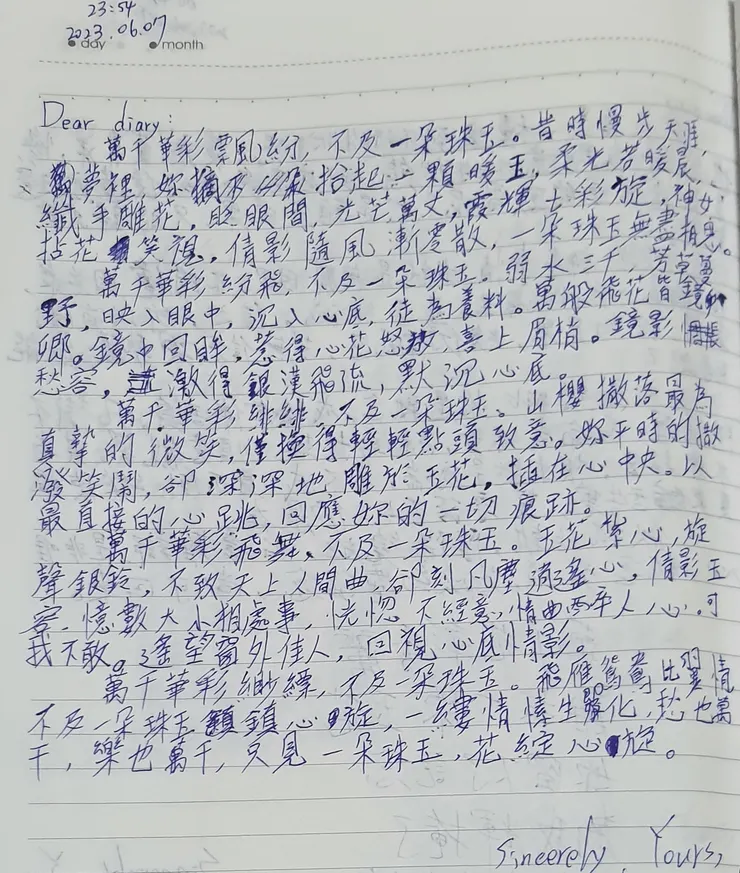 23:54
2023.06.07
day month
Dear diary:
萬千華彩雲風紛,不及一朵珠玉。昔時慢步天涯,
夢裡妳摘不 拾起一顆暖玉,柔光若暖晨,
纖手雕花,眨眼間,光芒萬丈,霞輝七彩旋,神女
拈花笑視,倩影隨風漸零散,一朵珠玉無盡相思。
萬千華彩紛飛,不及一朵珠玉。弱水三千,芳草蔓
野,映入眼中,沉入心底,徒為養料。萬般飛花皆鏡
鄉。鏡中回眸,惹得心花怒放,喜上眉梢。鏡影悵
愁容,激得銀漢飛流,默沉心底。
萬千華彩緋緋,不及一朵珠玉。山櫻撒落最為
直摯的微笑,僅換得輕輕點頭致意。妳平時的撒
潑笑鬧,卻深深地雕於玉花,插在心中央。以
最直接的心跳,回應妳的一切痕跡。
萬千華彩飛舞,不及一朵珠玉。玉花紮心,旋
聲銀鈴,不致天上人間曲,卻刻凡塵逍遙心,倩影玉
容,憶數大小相處事,恍惚不經意,情曲兩平人心,可
我不敢。遙望窗外佳人,回視心底情影。
萬千華彩緲縹,不及一朵珠玉。飛雁鴛鴦比翼情
不及一朵珠玉鎮心旋,一縷情愫生孵化,愁也萬
千,樂也萬千,只見一朵珠玉,花綻心旋。
Sincerely Yours,